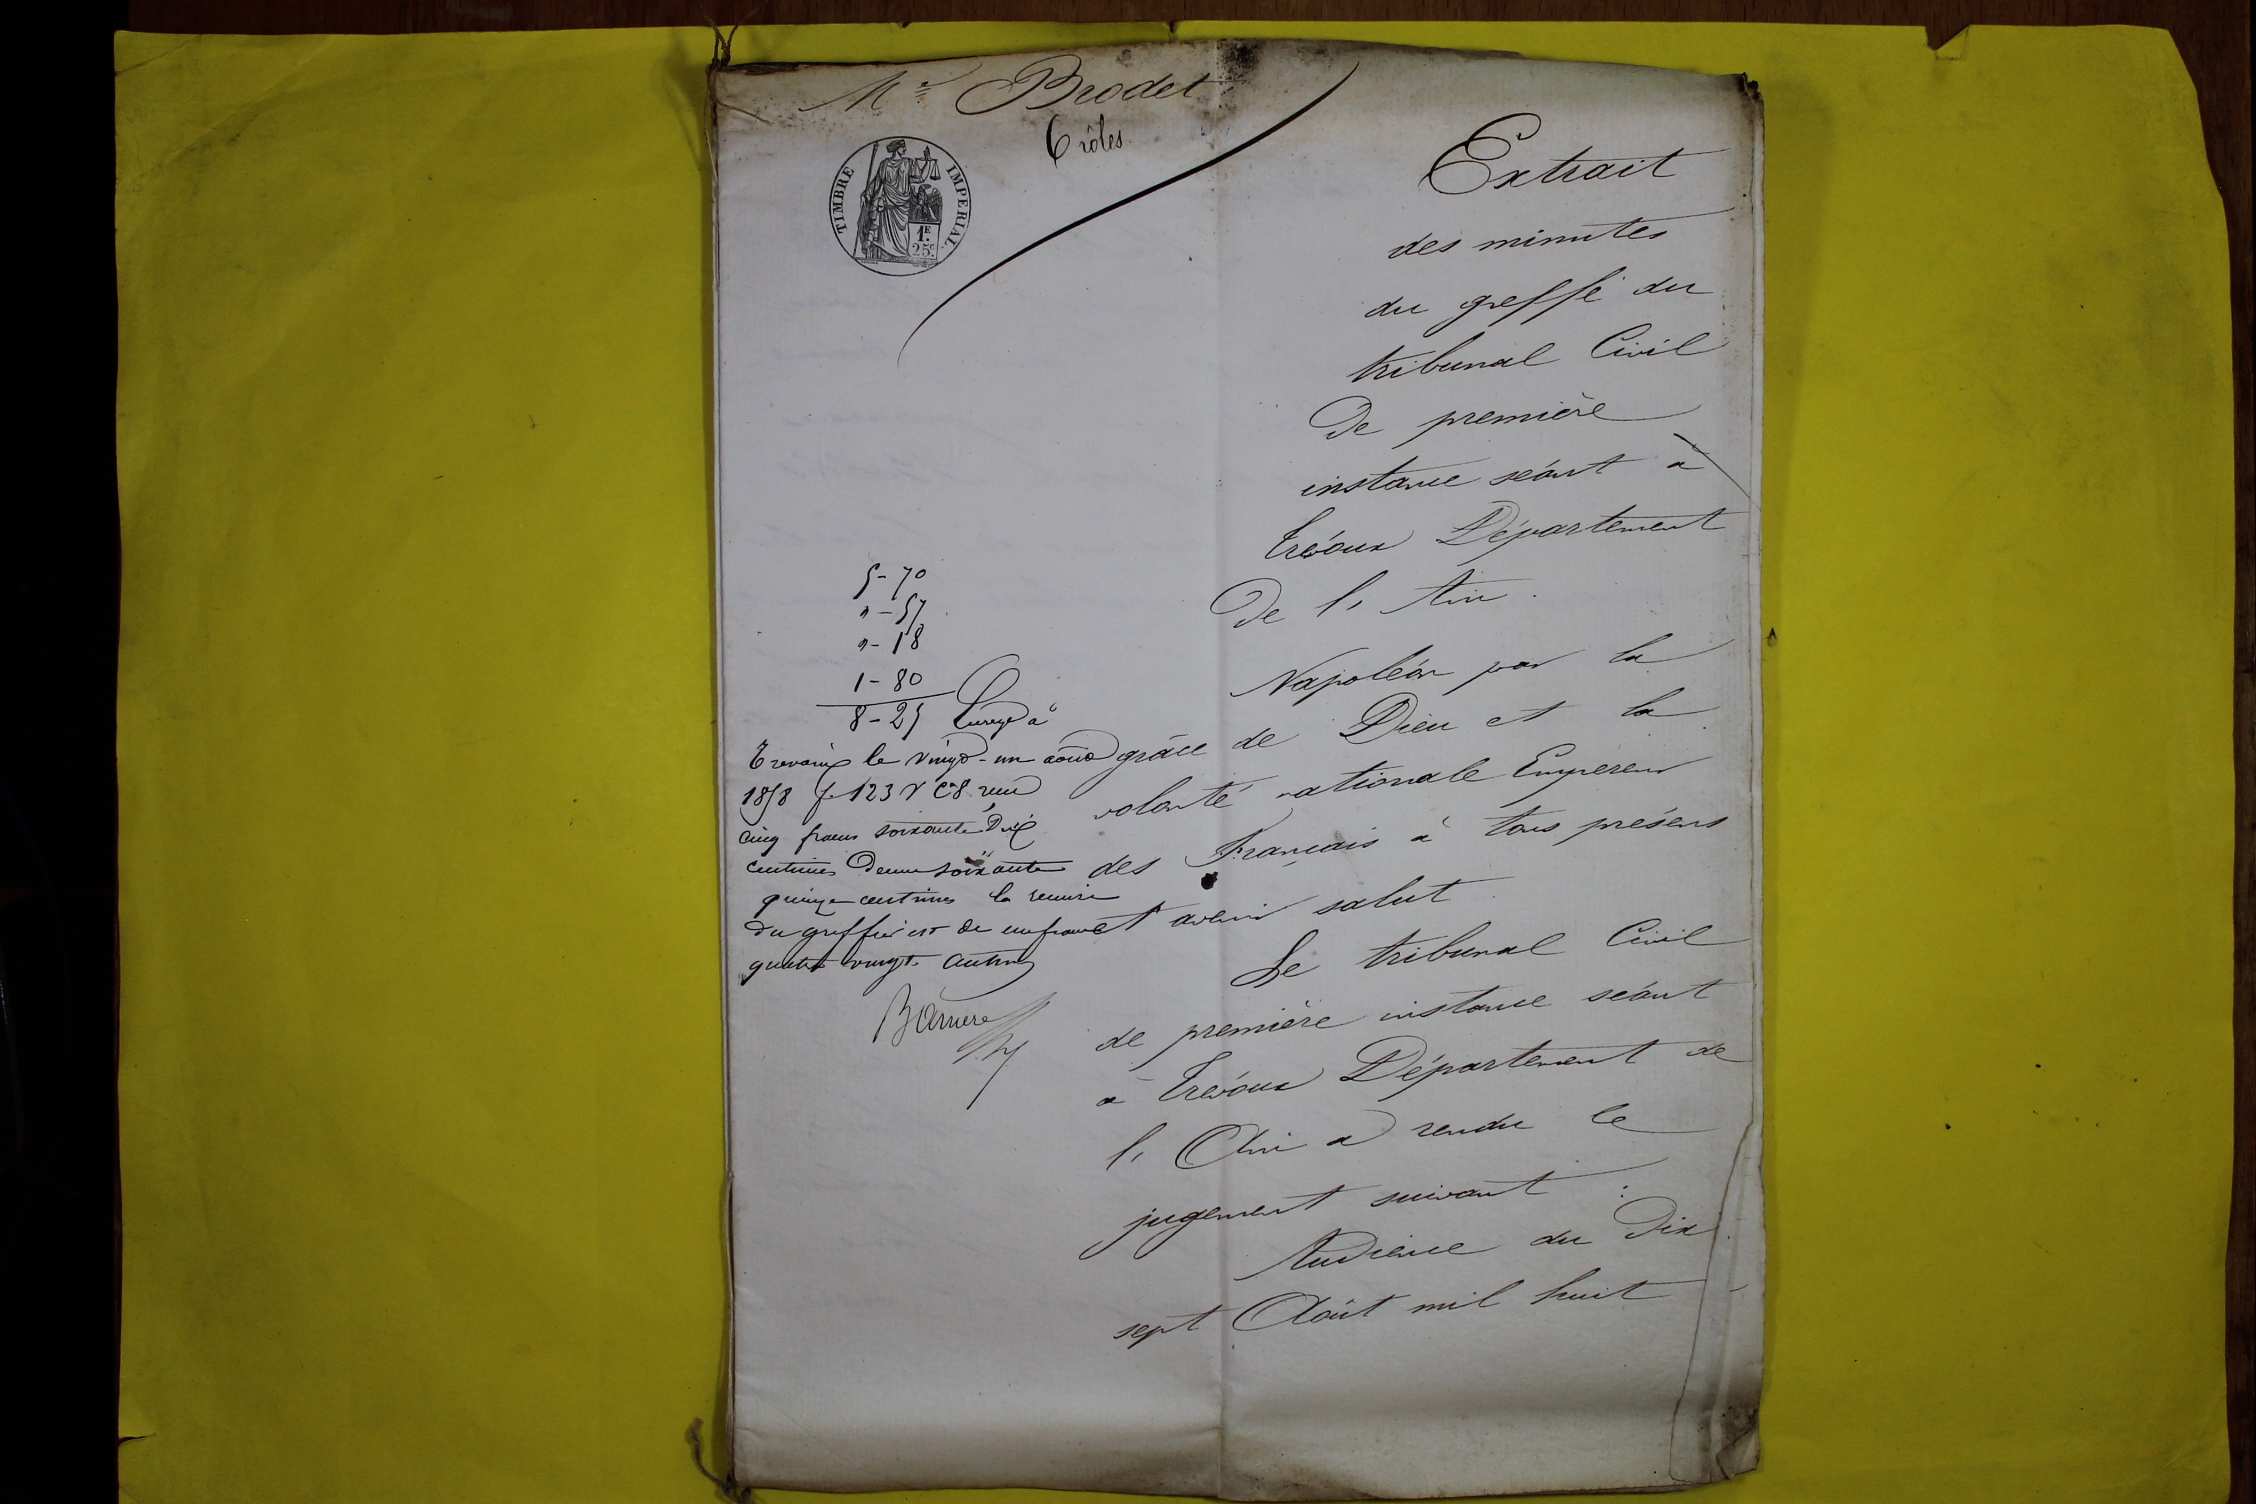 Me Brodet
6 rôles
TIMBRE IMPERIAL
1F.
25c.
Extrait
des minutes
du greffe du
tribunal Civil
De première
instance séant à
Trévoux Département
De l'Ain.
Napoléon par la
grâce de Dieu et la
volonté nationale Empereur
des Français à tous présens
et avenir salut
Le tribunal Civil
de première instance séant
à Trévoux Département de
l'Ain a rendu le
jugement suivant :
Audience du Dix
sept Août mil huit
5-70
"-57
"-18
1-80
8-25 Enregé à
Trévoux le vingt-un août
1858 f. 123 v c 8 reçu
cinq francs soixante Dix
centimes Décime soixante
quinze centimes la remise
du greffier est de un franc
quatre vingt centimes